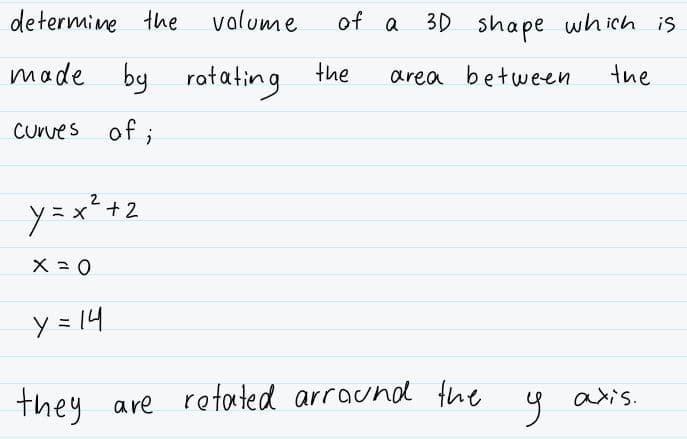 determine the volume of a 3D shape which is
made by rotating the area between the
curves of ;
y = x² + 2
x = 0
y = 14
they are rotated arround the y axis.